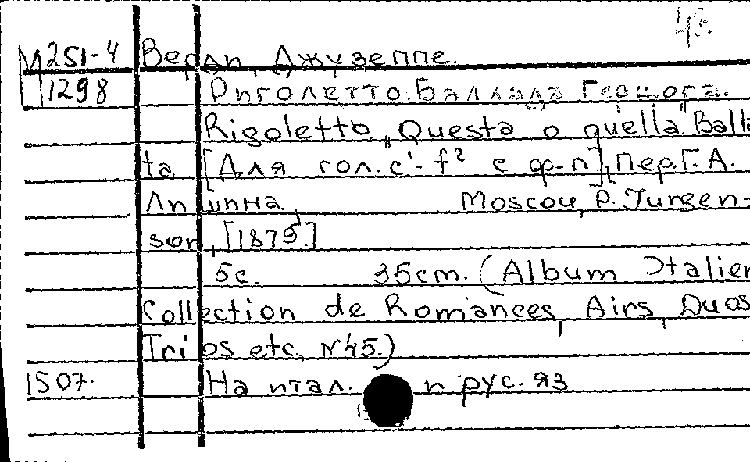 М251-4 Верди, Джузеппе.
1298 Риголетто. Баллада Герцога.
Rigoletto „Questa o quella" Balla
ta [Для гол. c'-f² с ф-п]. Пер. Г. А.
Лишина. Moscou, P. Jurgen-
son, [1879]
5с. 35cm. (Album Italien
Collection de Romances, Airs, Duos
Trios etc. N45.)
1507. На итал. и рус. яз